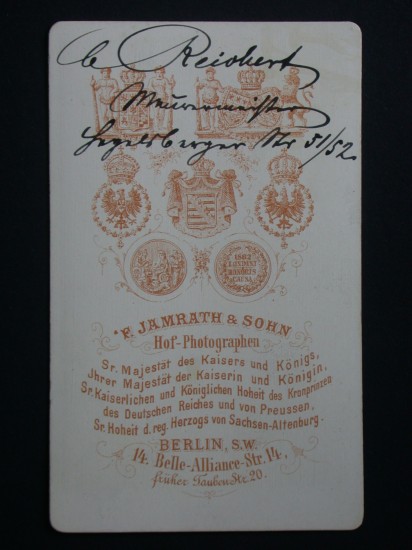 C Reichert
Maurermeister
Hagelsberger Str 51/52.
1862
LONDINI
HONORIS
CAUSA
F. JAMRATH & SOHN
Hof-Photographen
Sr. Majestät des Kaisers und Königs,
Jhrer Majestät der Kaiserin und Königin,
Sr. Kaiserlichen und Königlichen Hoheit des Kronprinzen
des Deutschen Reiches und von Preussen,
Sr. Hoheit d. reg. Herzogs von Sachsen-Altenburg.
BERLIN, S.W.
14. Belle-Alliance-Str. 14,
früher Tauben Str. 20.